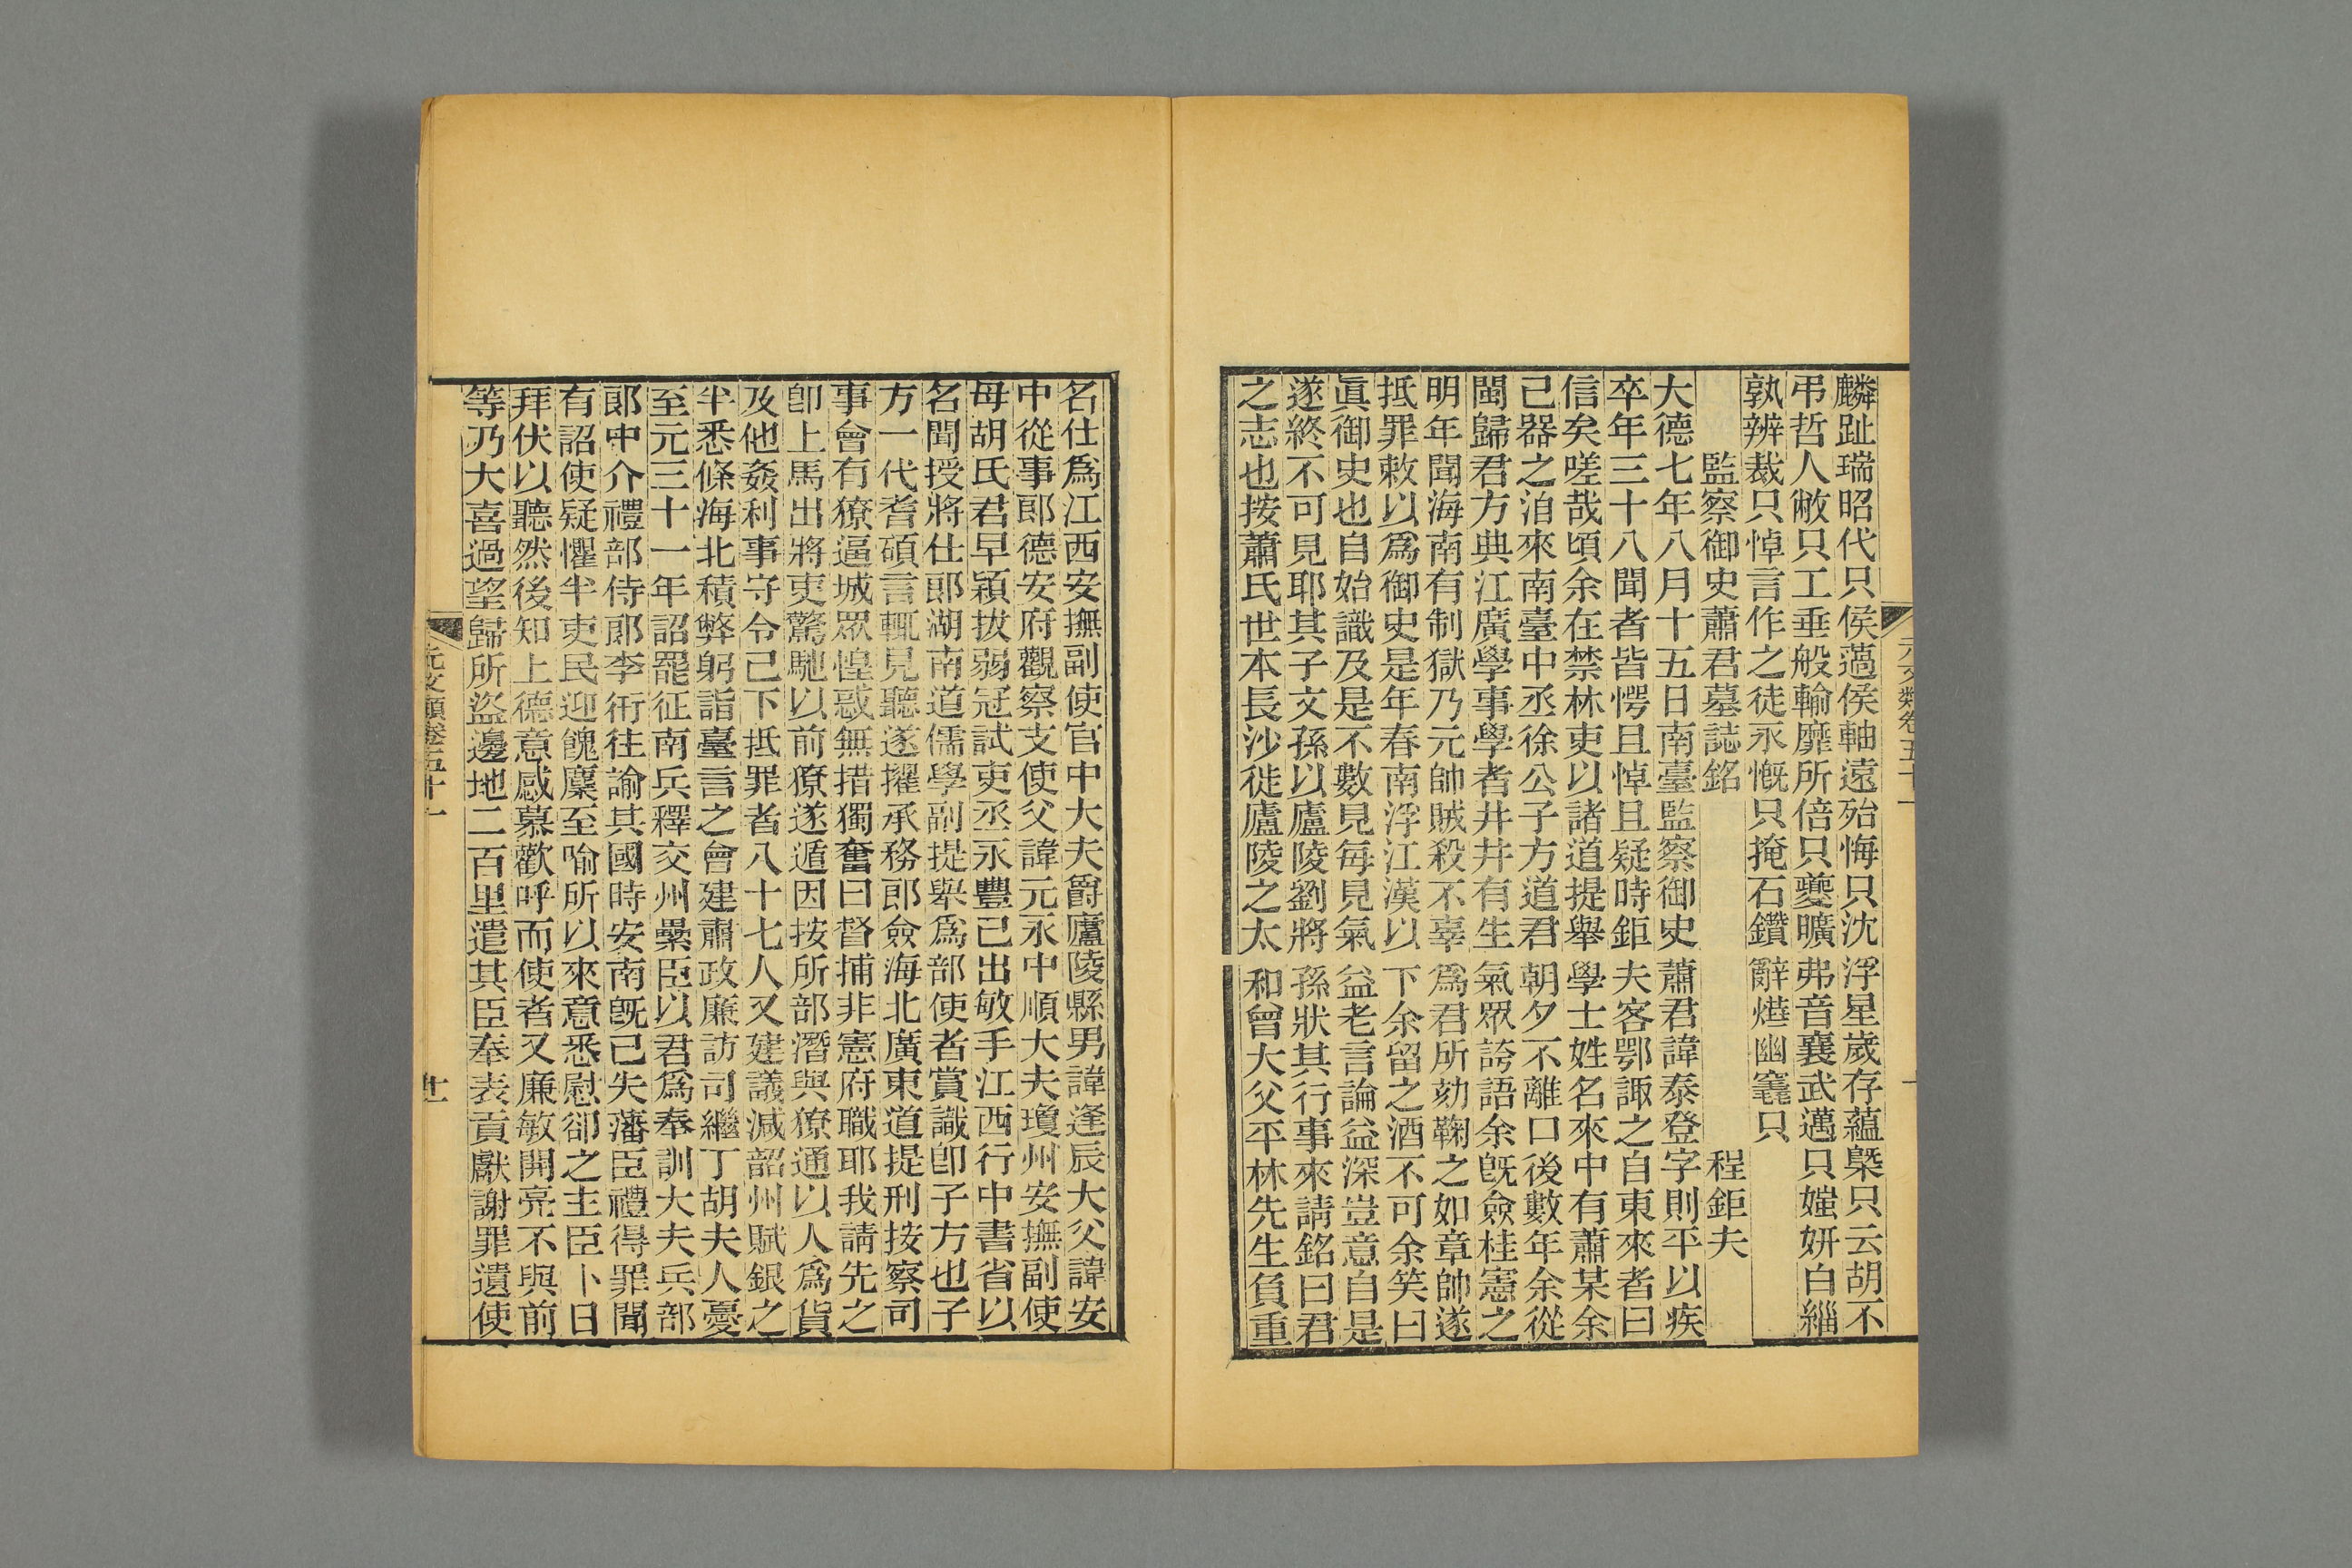 麟趾瑞昭代只侯薖侯軸遠殆悔只沈浮星歲存蘊槩只云胡不
弔哲人敝只工垂般輸靡所倍只夔曠弗音襄武邁只媸妍白緇
孰辨裁只悼言作之徒永慨只掩石鑽辭爇幽竁只
監察御史蕭君墓誌銘 程鉅夫
大德七年八月十五日南臺監察御史蕭君諱泰登字則平以疾
卒年三十八聞者皆愕且悼且疑時鉅夫客鄂諏之自東來者曰
信矣嗟哉頃余在禁林吏以諸道提舉學士姓名來中有蕭某余
己器之洎來南臺中丞徐公子方道君朝夕不離口後數年余從
閩歸君方典江廣學事學者井井有生氣眾誇語余旣僉桂憲之
明年聞海南有制獄乃元帥賊殺不辜爲君所劾鞠之如章帥遂
抵罪敕以爲御史是年春南浮江漢以下余留之酒不可余笑曰
眞御史也自始識及是不數見每見氣益老言論益深豈意自是
遂終不可見耶其子文孫以廬陵劉將孫狀其行事來請銘曰君
之志也按蕭氏世本長沙徙廬陵之太和曾大父平林先生負重
名仕爲江西安撫副使官中大夫爵廬陵縣男諱逢辰大父諱安
中從事郎德安府觀察支使父諱元永中順大夫瓊州安撫副使
母胡氏君早穎拔弱冠試吏丞永豐己出敏手江西行中書省以
名聞授將仕郎湖南道儒學副提舉爲部使者賞識卽子方也子
方一代耆碩言輒見聽遂擢承務郎僉海北廣東道提刑按察司
事會有獠逼城眾惶惑無措獨奮曰督捕非憲府職耶我請先之
卽上馬出將吏驚馳以前獠遂遁因按所部潛與獠通以人爲貨
及他姦利事守令己下抵罪者八十七人又建議減韶州賦銀之
半悉條海北積弊躬詣臺言之會建肅政廉訪司繼丁胡夫人憂
至元三十一年詔罷征南兵釋交州纍臣以君爲奉訓大夫兵部
郎中介禮部侍郎李衎往諭其國時安南旣己失藩臣禮得罪聞
有詔使疑懼半吏民迎餽麇至喻所以來意悉慰卻之主臣卜日
拜伏以聽然後知上德意感慕歡呼而使者又廉敏開亮不與前
等乃大喜過望歸所盜邊地二百里遣其臣奉表貢獻謝罪遺使
元文類卷五十一
十一